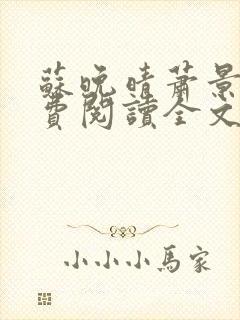 蘇晚晴蕭景
費閱讀全文
小小小馬家